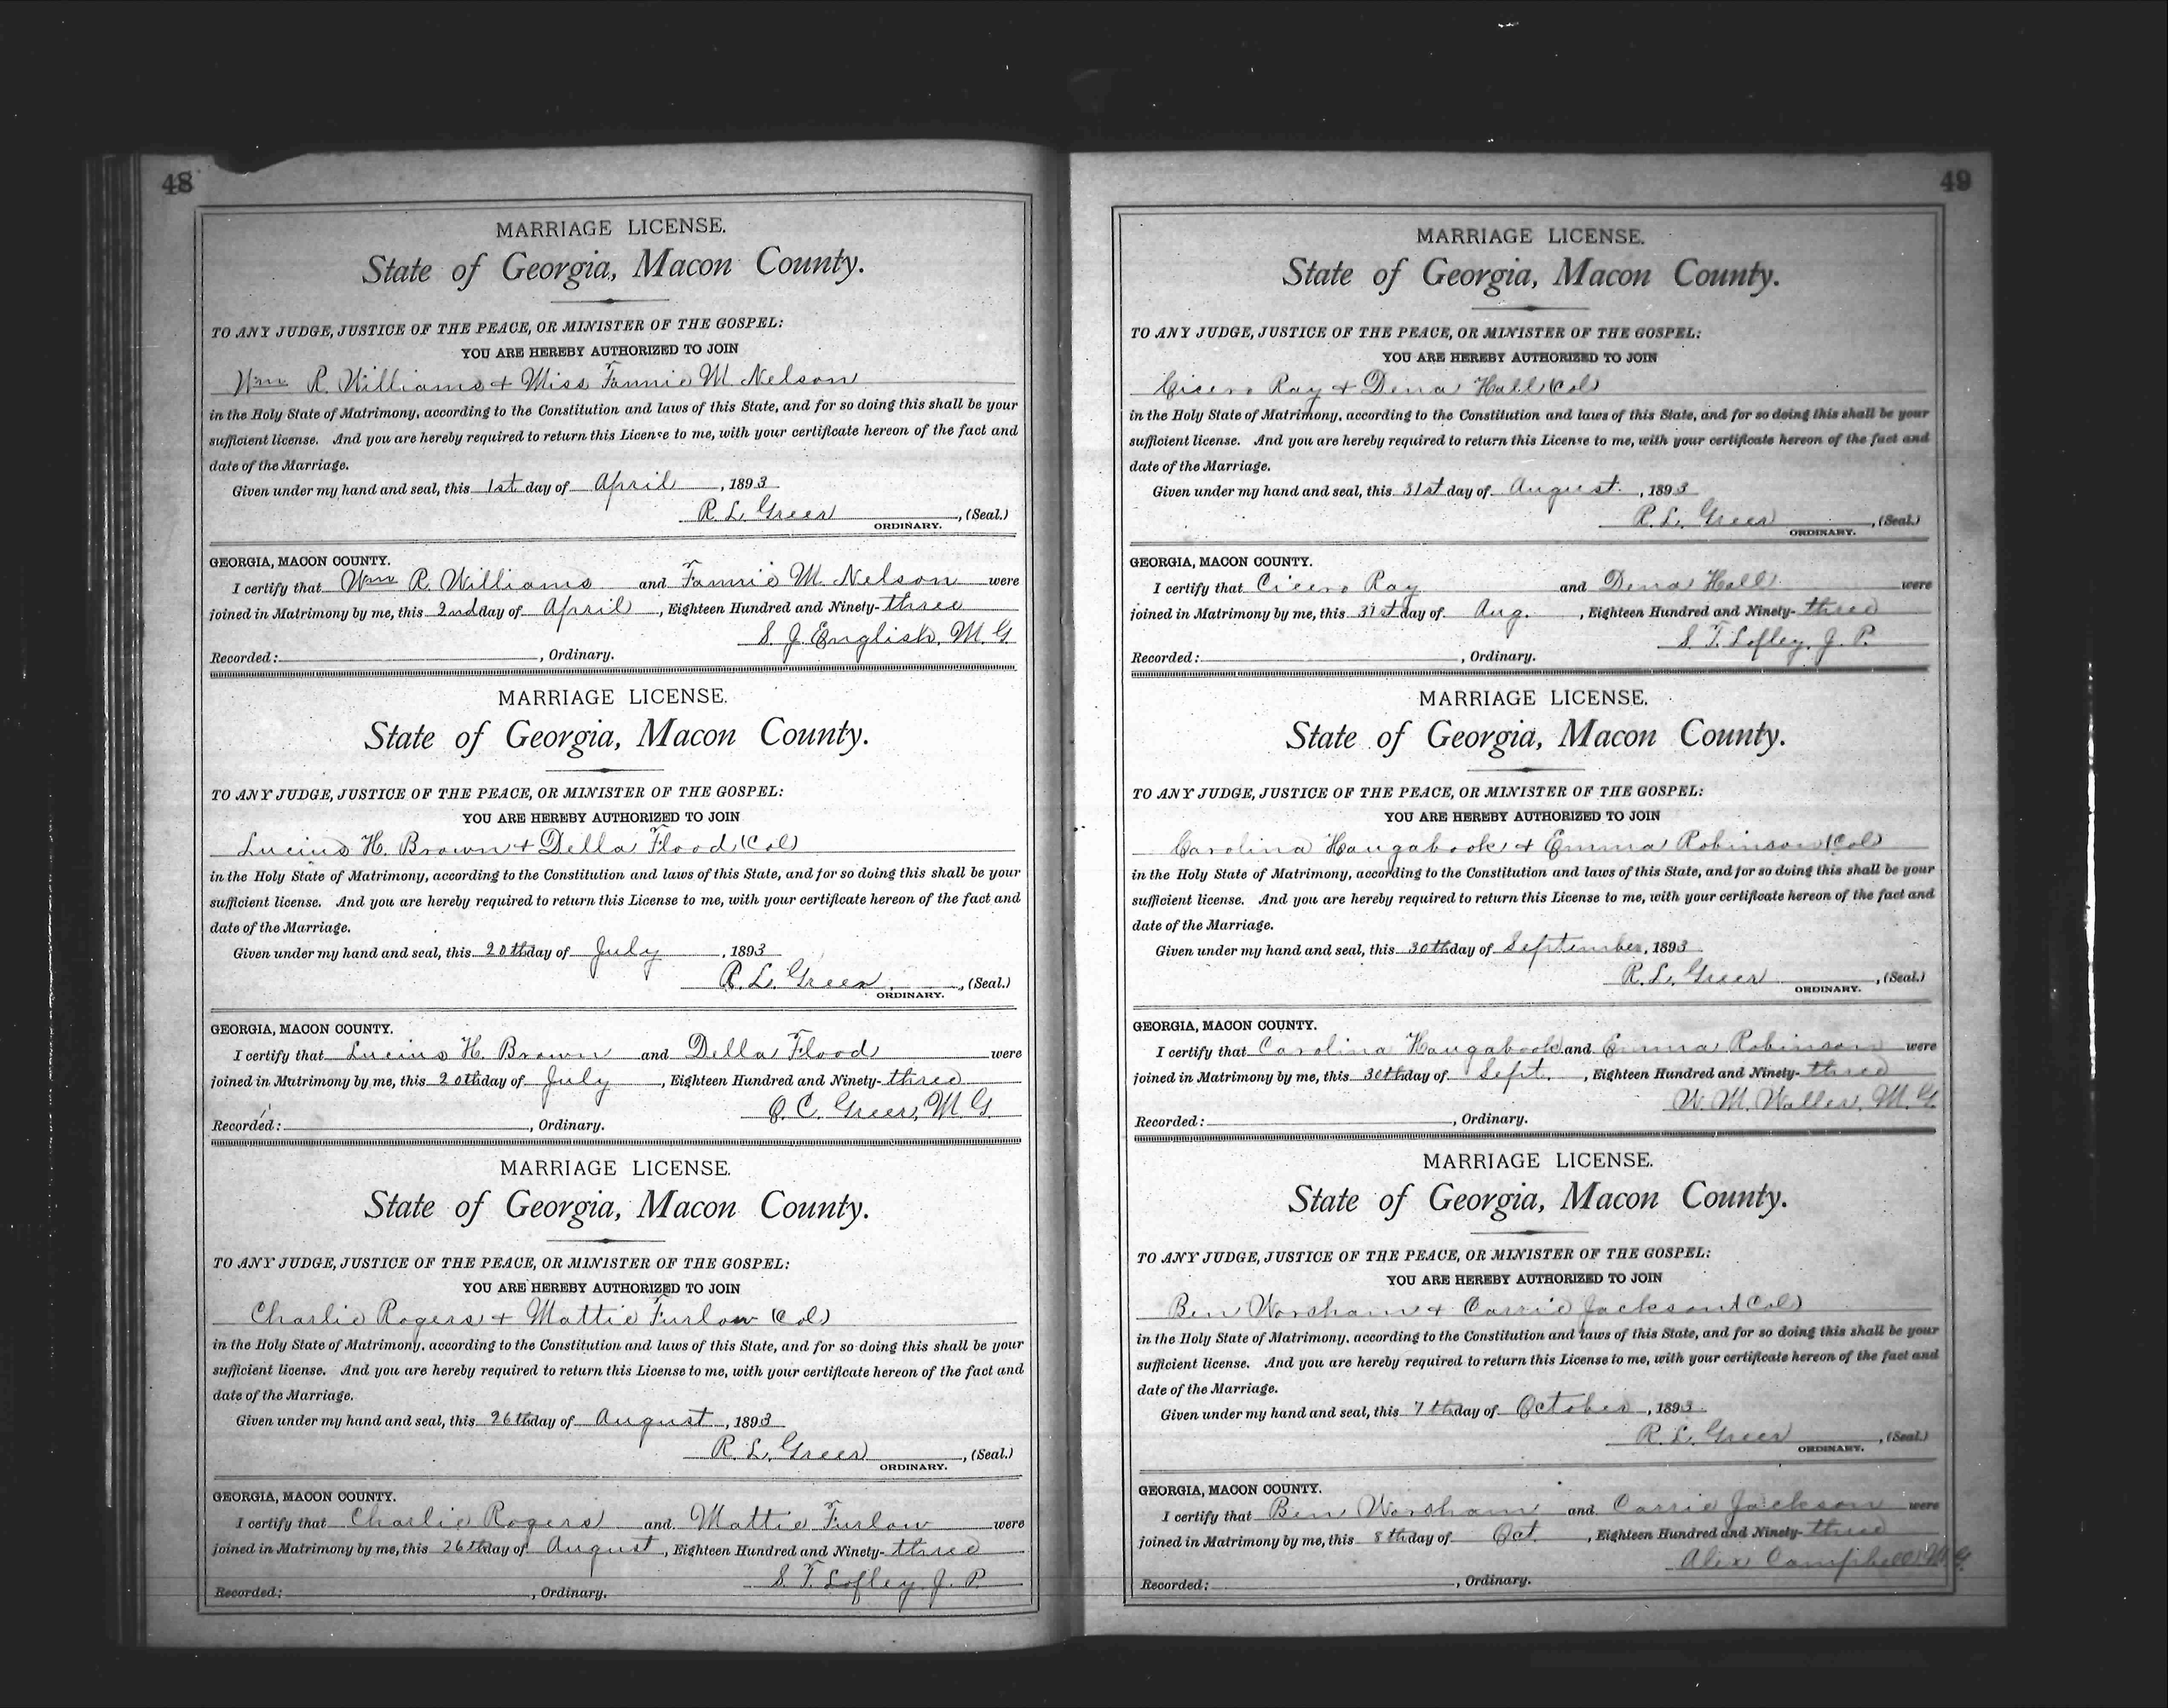 48
MARRIAGE LICENSE.
State of Georgia, Macon County.
TO ANY JUDGE, JUSTICE OF THE PEACE, OR MINISTER OF THE GOSPEL:
YOU ARE HEREBY AUTHORIZED TO JOIN
Wm R. Williams + Miss Fannie M. Nelson
in the Holy State of Matrimony, according to the Constitution and laws of this State, and for so doing this shall be your
sufficient license. And you are hereby required to return this License to me, with your certificate hereon of the fact and
date of the Marriage.
Given under my hand and seal, this 1st day of April, 1893
R. L. Greer, (Seal.)
ORDINARY.
GEORGIA, MACON COUNTY.
I certify that Wm R. Williams and Fannie M. Nelson were
joined in Matrimony by me, this 2nd day of April, Eighteen Hundred and Ninety-three
S. J. English, M. G
Recorded: , Ordinary.
MARRIAGE LICENSE.
State of Georgia, Macon County.
TO ANY JUDGE, JUSTICE OF THE PEACE, OR MINISTER OF THE GOSPEL:
YOU ARE HEREBY AUTHORIZED TO JOIN
Lucius H. Brown + Della Flood (Col)
in the Holy State of Matrimony, according to the Constitution and laws of this State, and for so doing this shall be your
sufficient license. And you are hereby required to return this License to me, with your certificate hereon of the fact and
date of the Marriage.
Given under my hand and seal, this 20th day of July, 1893
R. L. Greer, (Seal.)
ORDINARY.
GEORGIA, MACON COUNTY.
I certify that Lucius H. Brown and Della Flood were
joined in Matrimony by me, this 20th day of July, Eighteen Hundred and Ninety-three
O. C. Greer, M G
Recorded: , Ordinary.
MARRIAGE LICENSE.
State of Georgia, Macon County.
TO ANY JUDGE, JUSTICE OF THE PEACE, OR MINISTER OF THE GOSPEL:
YOU ARE HEREBY AUTHORIZED TO JOIN
Charlie Rogers + Mattie Furlow (Col)
in the Holy State of Matrimony, according to the Constitution and laws of this State, and for so doing this shall be your
sufficient license. And you are hereby required to return this License to me, with your certificate hereon of the fact and
date of the Marriage.
Given under my hand and seal, this 26th day of August, 1893
R. L. Greer, (Seal.)
ORDINARY.
GEORGIA, MACON COUNTY.
I certify that Charlie Rogers and Mattie Furlow were
joined in Matrimony by me, this 26th day of August, Eighteen Hundred and Ninety-three
S. T. Lofley J. P.
Recorded: , Ordinary.
49
MARRIAGE LICENSE.
State of Georgia, Macon County.
TO ANY JUDGE, JUSTICE OF THE PEACE, OR MINISTER OF THE GOSPEL:
YOU ARE HEREBY AUTHORIZED TO JOIN
Cicero Ray + Dena Hall (Col)
in the Holy State of Matrimony, according to the Constitution and laws of this State, and for so doing this shall be your
sufficient license. And you are hereby required to return this License to me, with your certificate hereon of the fact and
date of the Marriage.
Given under my hand and seal, this 31st day of August., 1893
R. L. Greer, (Seal.)
ORDINARY.
GEORGIA, MACON COUNTY.
I certify that Cicero Ray and Dena Hall were
joined in Matrimony by me, this 31st day of Aug., Eighteen Hundred and Ninety-three
S. T. Lofley, J. P.
Recorded: , Ordinary.
MARRIAGE LICENSE.
State of Georgia, Macon County.
TO ANY JUDGE, JUSTICE OF THE PEACE, OR MINISTER OF THE GOSPEL:
YOU ARE HEREBY AUTHORIZED TO JOIN
Carolina Haugabook + Emma Robinson (Col)
in the Holy State of Matrimony, according to the Constitution and laws of this State, and for so doing this shall be your
sufficient license. And you are hereby required to return this License to me, with your certificate hereon of the fact and
date of the Marriage.
Given under my hand and seal, this 30th day of September, 1893
R. L. Greer, (Seal.)
ORDINARY.
GEORGIA, MACON COUNTY.
I certify that Carolina Haugabook and Emma Robinson were
joined in Matrimony by me, this 30th day of Sept., Eighteen Hundred and Ninety-three
W. M. Waller, M. G.
Recorded: , Ordinary.
MARRIAGE LICENSE.
State of Georgia, Macon County.
TO ANY JUDGE, JUSTICE OF THE PEACE, OR MINISTER OF THE GOSPEL:
YOU ARE HEREBY AUTHORIZED TO JOIN
Ben Worsham + Carrie Jackson (Col)
in the Holy State of Matrimony, according to the Constitution and laws of this State, and for so doing this shall be your
sufficient license. And you are hereby required to return this License to me, with your certificate hereon of the fact and
date of the Marriage.
Given under my hand and seal, this 7th day of October, 1893
R. L. Greer, (Seal.)
ORDINARY.
GEORGIA, MACON COUNTY.
I certify that Ben Worsham and Carrie Jackson were
joined in Matrimony by me, this 8th day of Oct, Eighteen Hundred and Ninety-three
Alex Campbell M. G.
Recorded: , Ordinary.